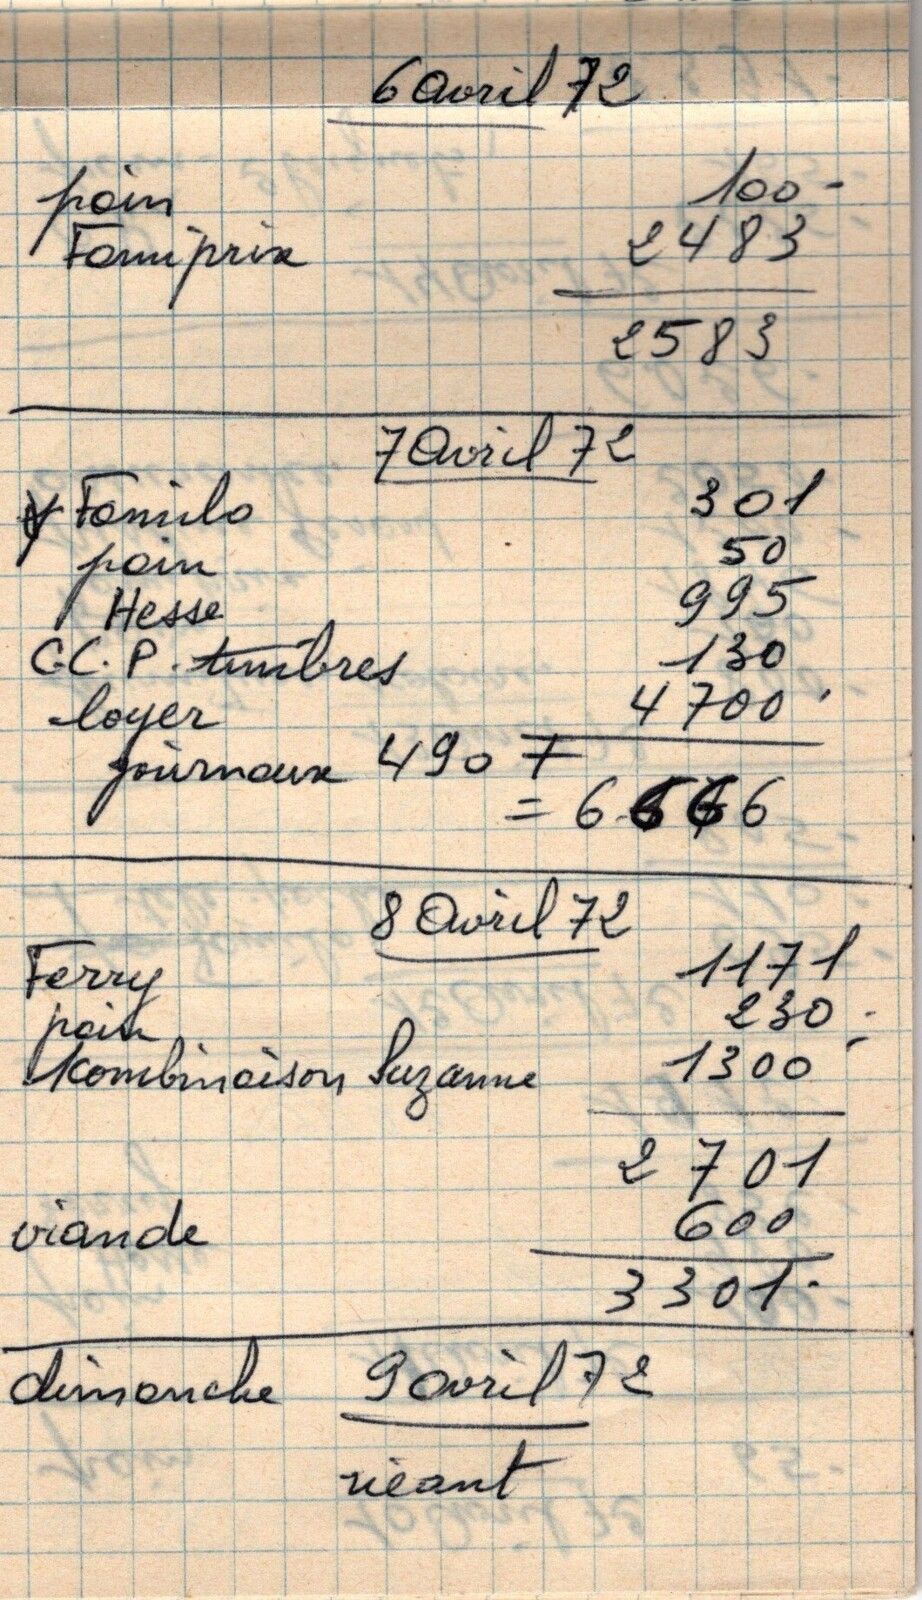 6 Avril 72
pain 100-
Famiprix 2483
2583
7 Avril 72
Familo 301
pain 50
Hesse 995
C.C.P. timbres 130
loyer 4700
journaux 490
= 6666
8 Avril 72
Ferry 1171
pain 230-
1 Kombinaison Suzanne 1300-
2701
viande 600
3301.
dimanche 9 avril 72
néant